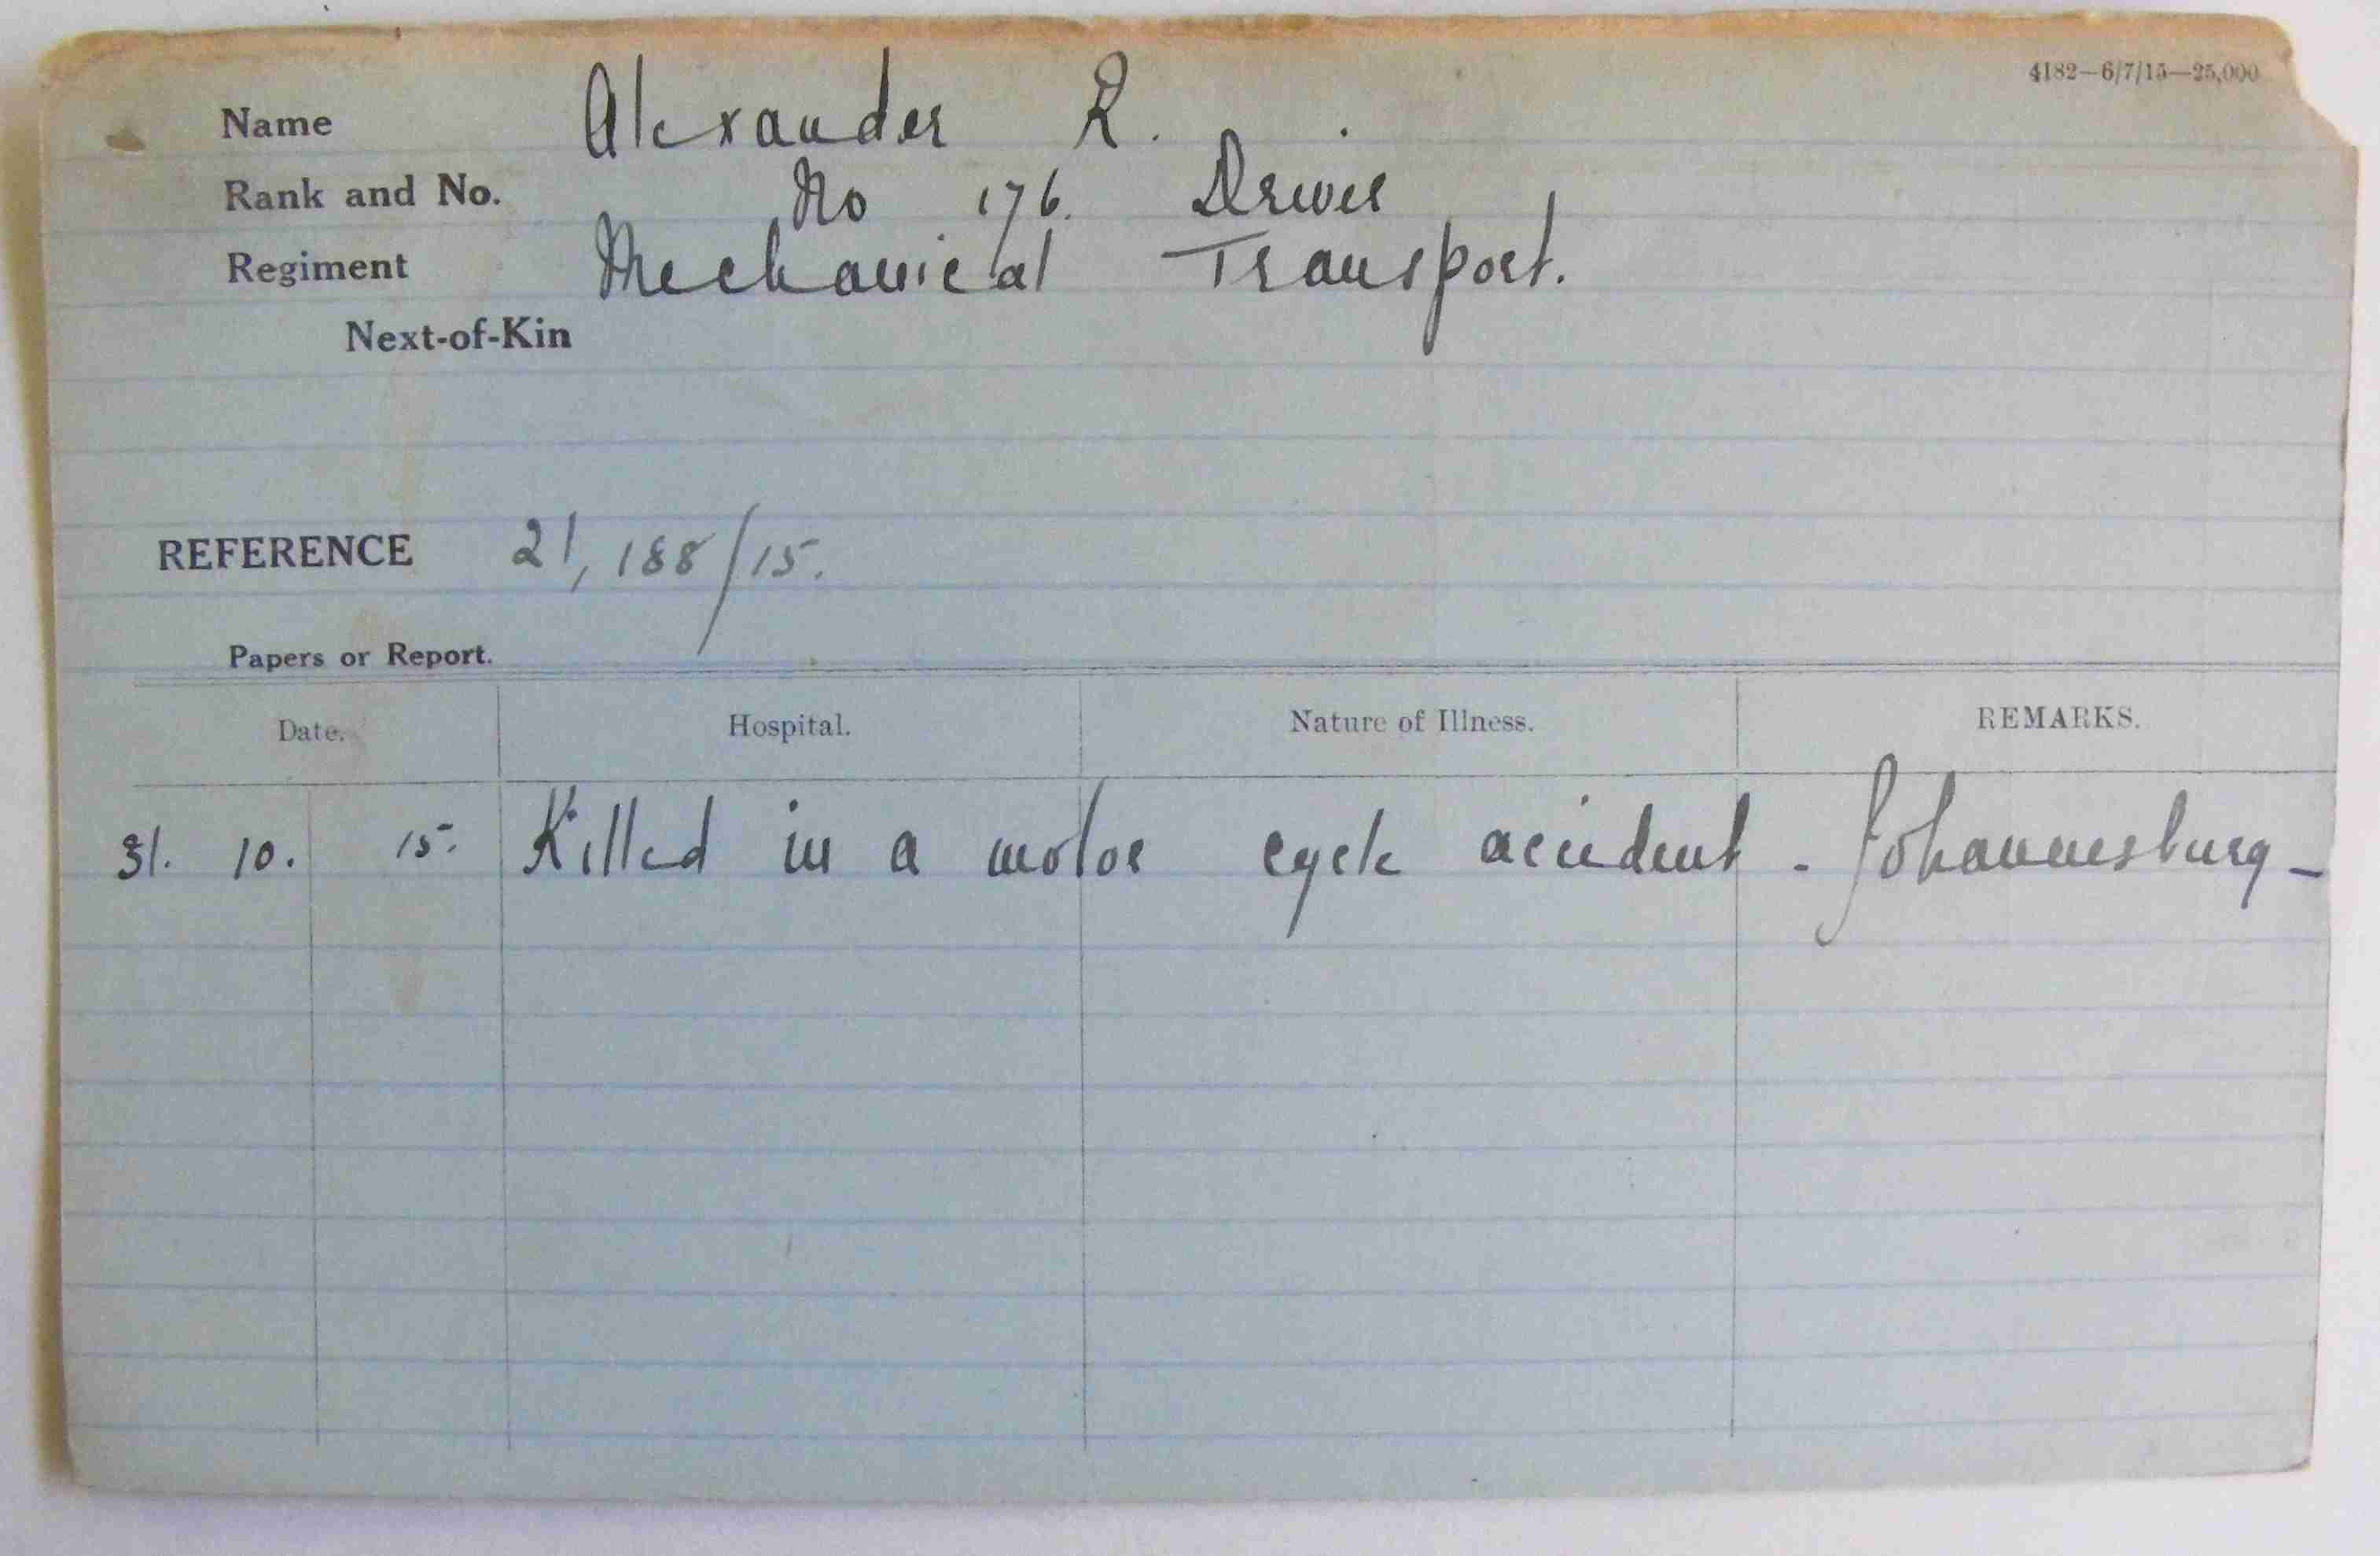 4182—6/7/15—25,000
Name Alexander R.
Rank and No. No 176. Driver
Regiment Mechanical Transport.
Next-of-Kin
REFERENCE 21,188/15.
Papers or Report.
Date. Hospital. Nature of Illness. REMARKS.
31. 10. 15. Killed in a motor cycle accident - Johannesburg -